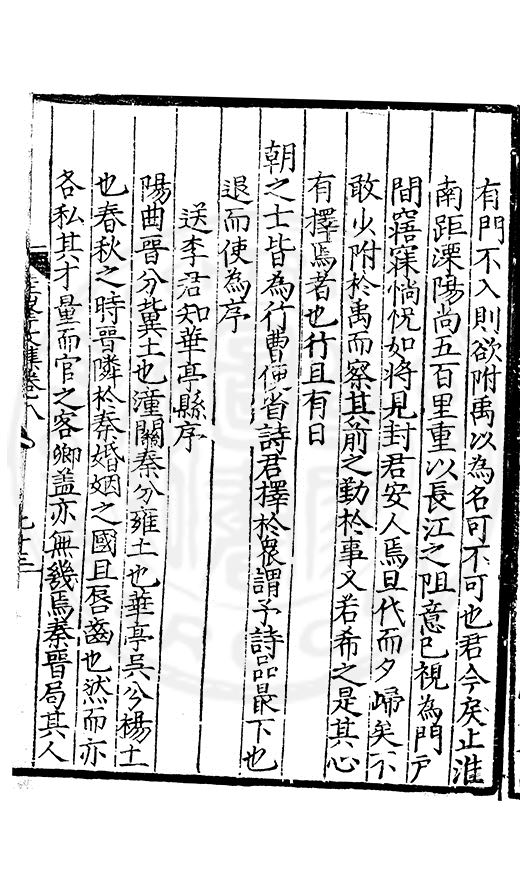 有門不入則欲附禹以為名可不可也君今矦止淮
南距溧陽尚五百里重以長江之阻意已視為門戸
間窹寐惝怳如將見封君安人焉旦代而夕歸矣不
敢少附於禹而察其前之勤於事又若希之是其心
有擇焉者也行且有日
朝之士皆為行曹便省詩君擇於衆謂予詩品最下也
退而使為序
送李君知華亭縣序
陽曲晉分冀土也潼關秦分雍土也華亭吳分楊土
也春秋之時晉隣於秦婚姻之國且唇齒也然而亦
各私其才量而官之客卿盖亦無幾焉秦晉局其人